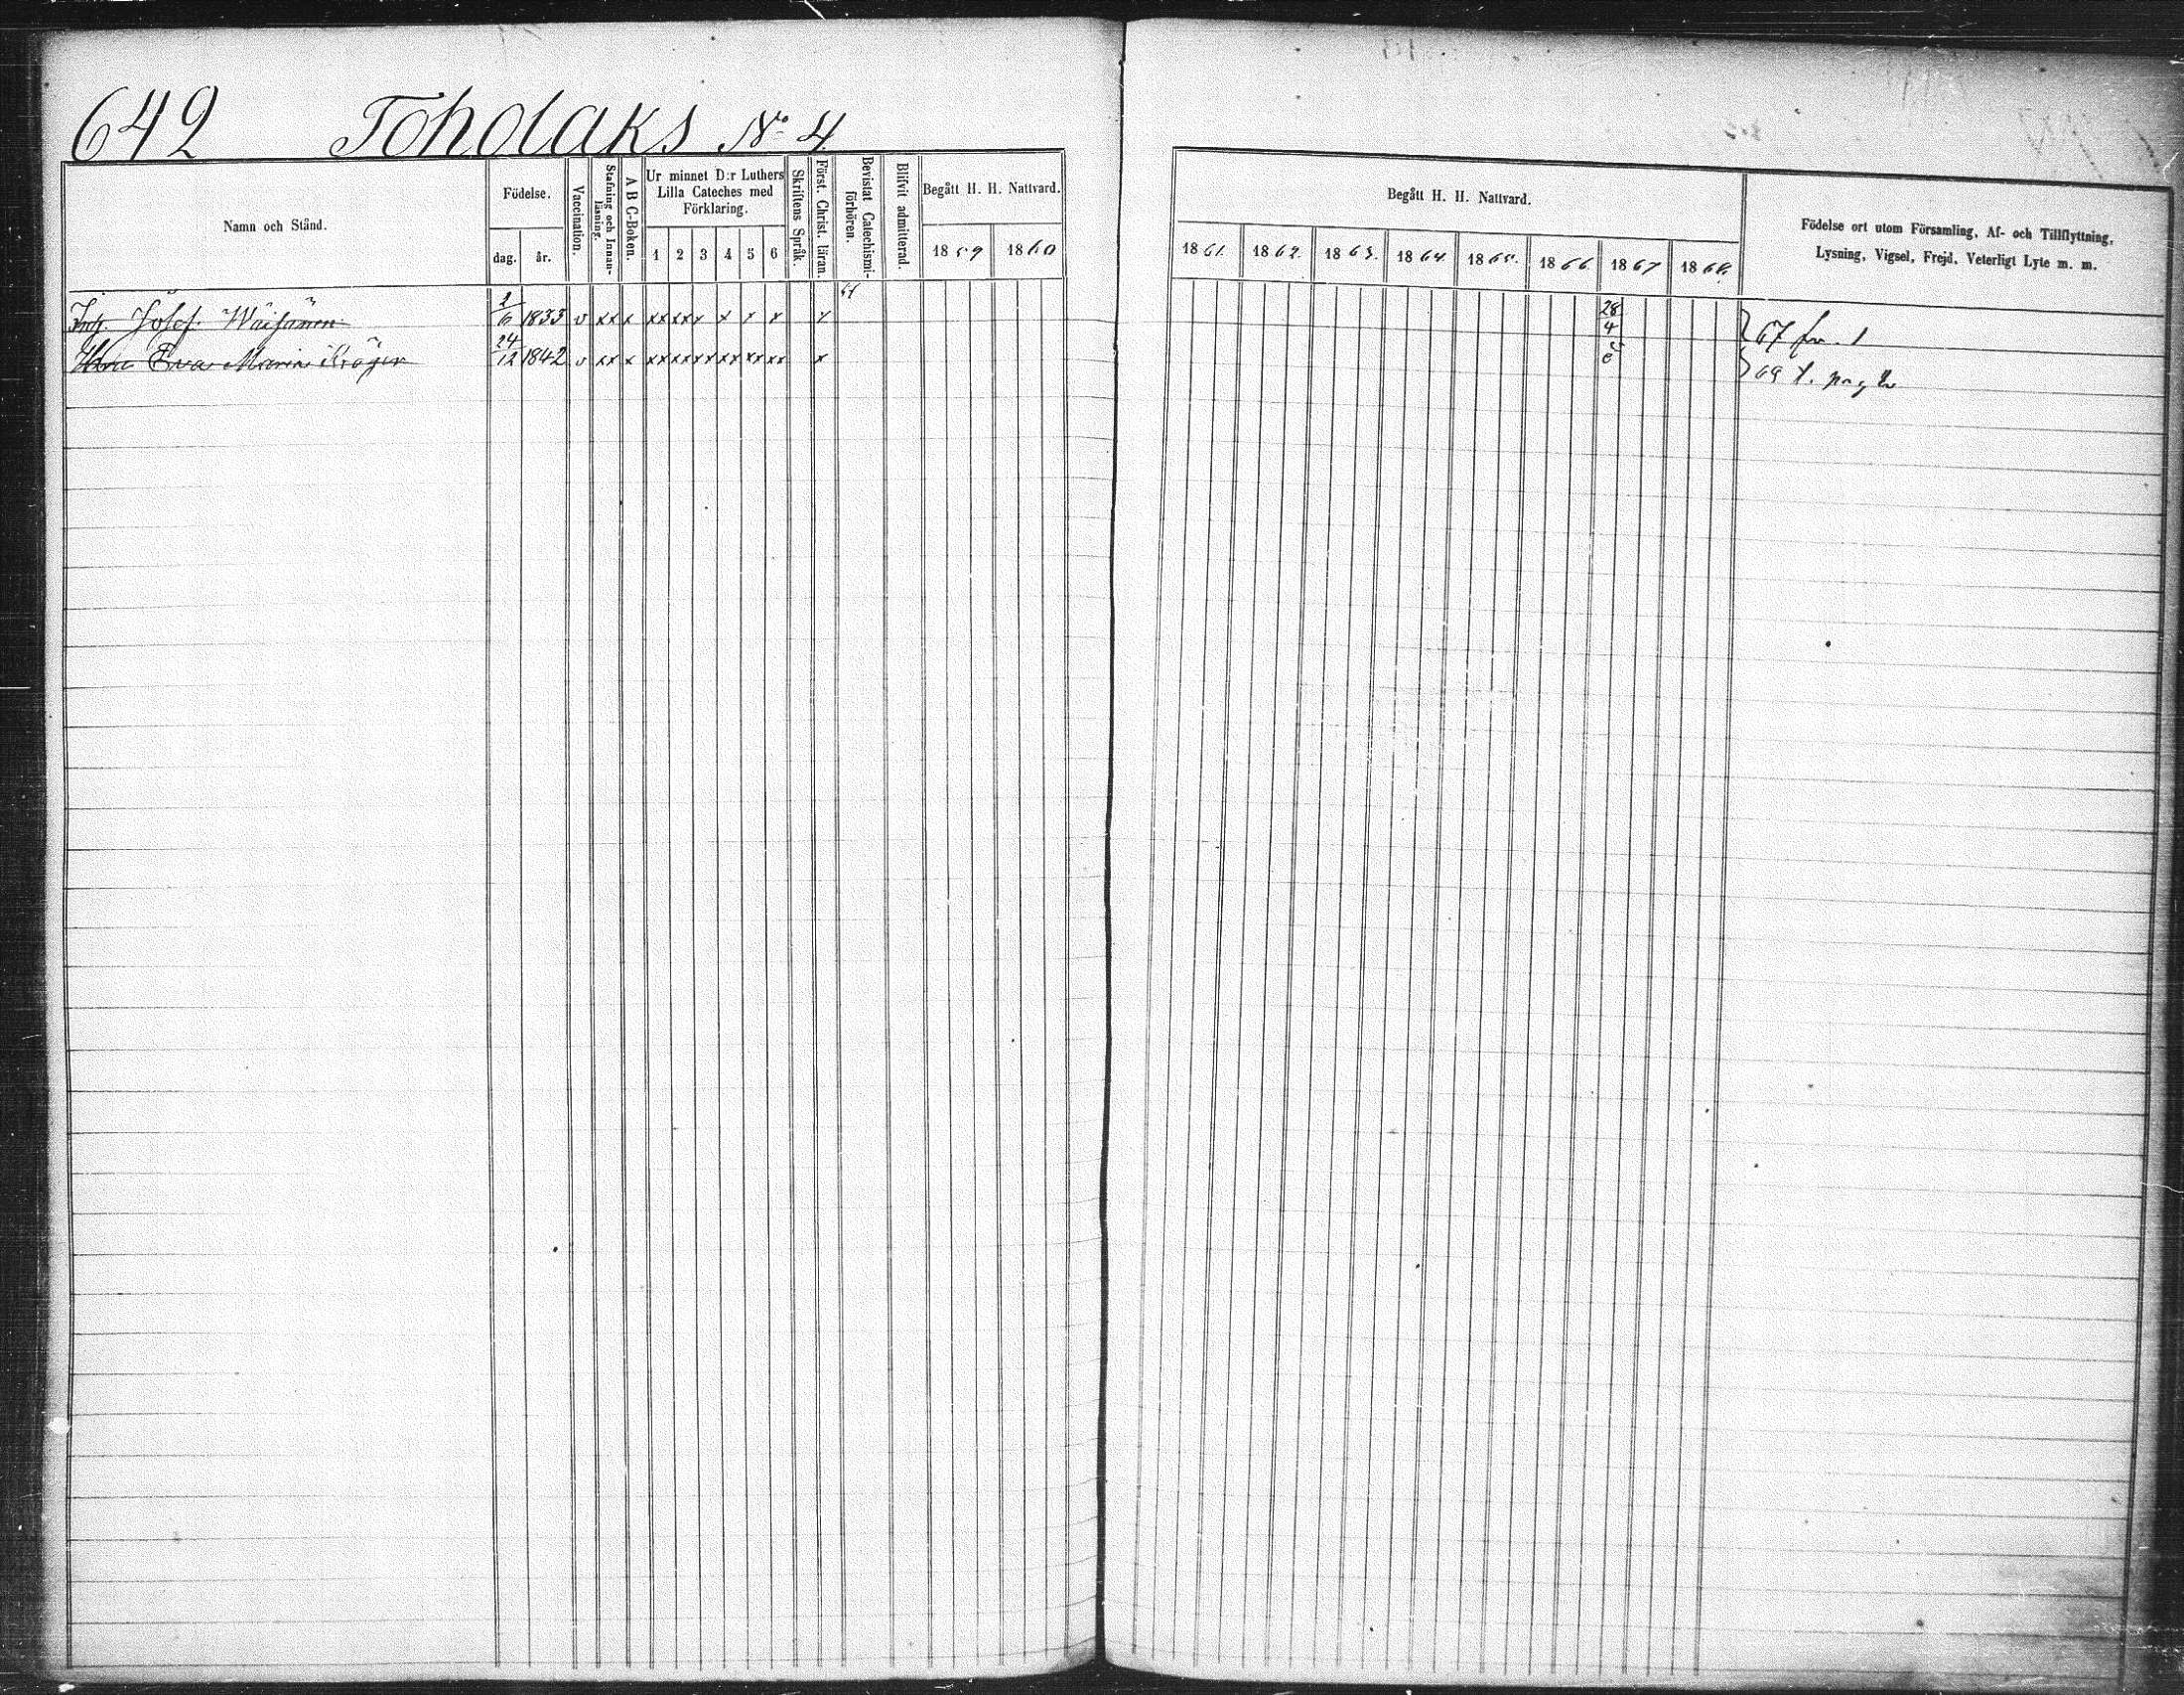 642 Tohdaks No 4
Namn och Stånd.
Födelse.
dag.
år.
Vaccination.
Stafning och Innanläsning.
A B C-Boken.
Ur minnet D:r Luthers
Lilla Cateches med
Förklaring.
1 2 3 4 5 6
Skriftens Språk.
Först. Christ. läran.
Bevistat Catechismi-
förhören.
Blifvit admitterad.
Begått H. H. Nattvard.
1859 1860
Begått H. H. Nattvard.
1861. 1862. 1863. 1864. 1865. 1866. 1867. 1868.
Födelse ort utom Församling, Af- och Tillflyttning,
Lysning, Vigsel, Frejd, Veterligt Lyte m. m.
Josef Wäisänen 2/6 1833 v xx x xx xx x x x x x 28/4 67 fr. 1
Eva Maria Kröger 24/12 1842 v xx x xx xx xx xx xx xx x 69